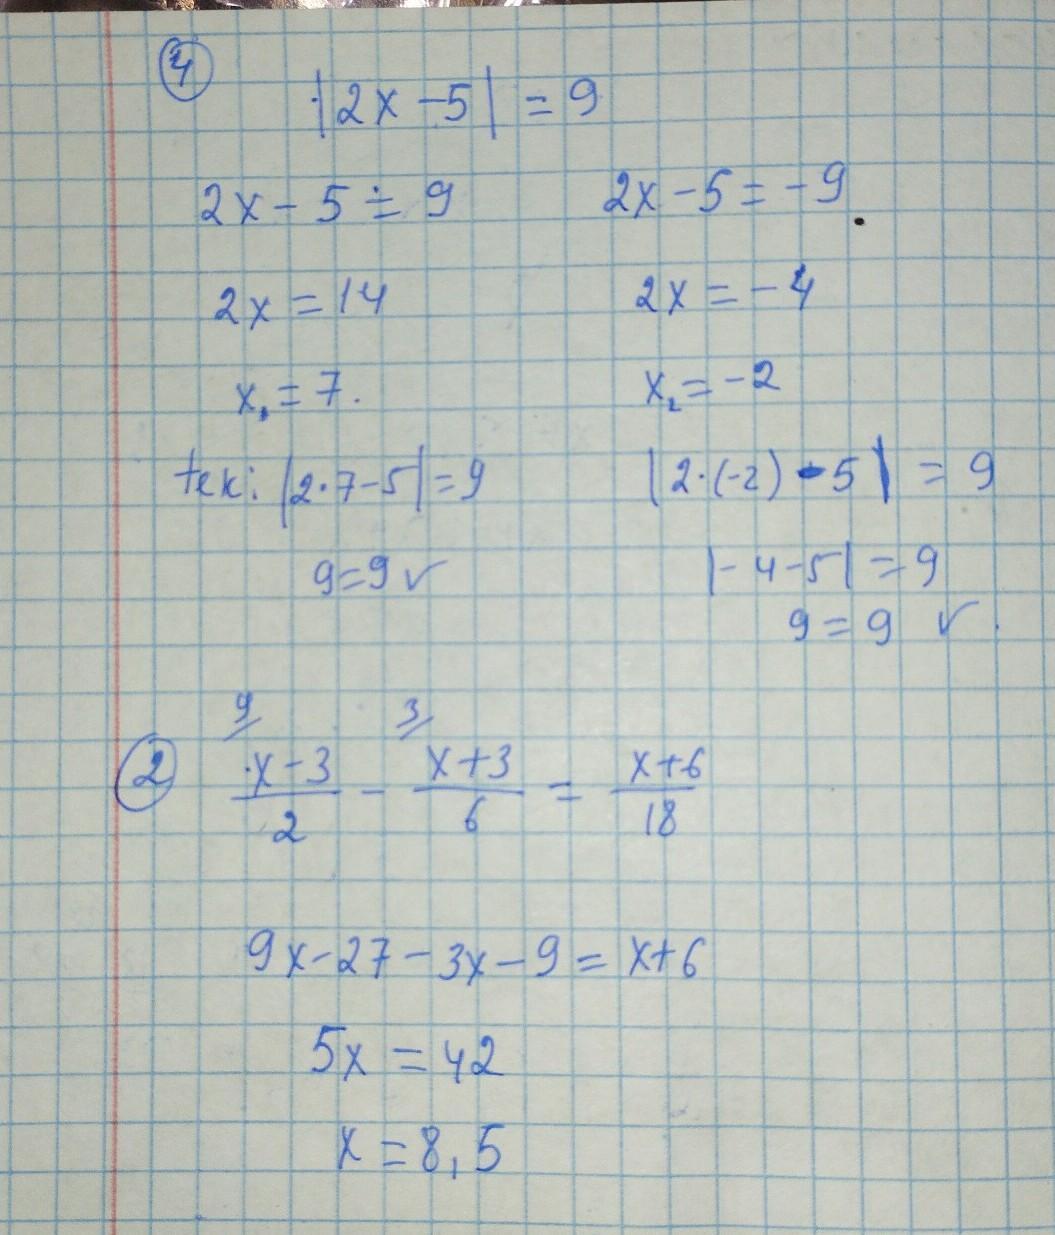 4
|2x-5| = 9
2x-5=9 2x-5=-9
2x=14 2x=-4
x₁=7. x₂=-2
tek: |2·7-5|=9 |2·(-2)-5|=9
9=9✓ |-4-5|=9
9=9 ✓
9 3
2 x-3 x+3 x+6
— - — = —
2 6 18
9x-27-3x-9=x+6
5x=42
x=8,5